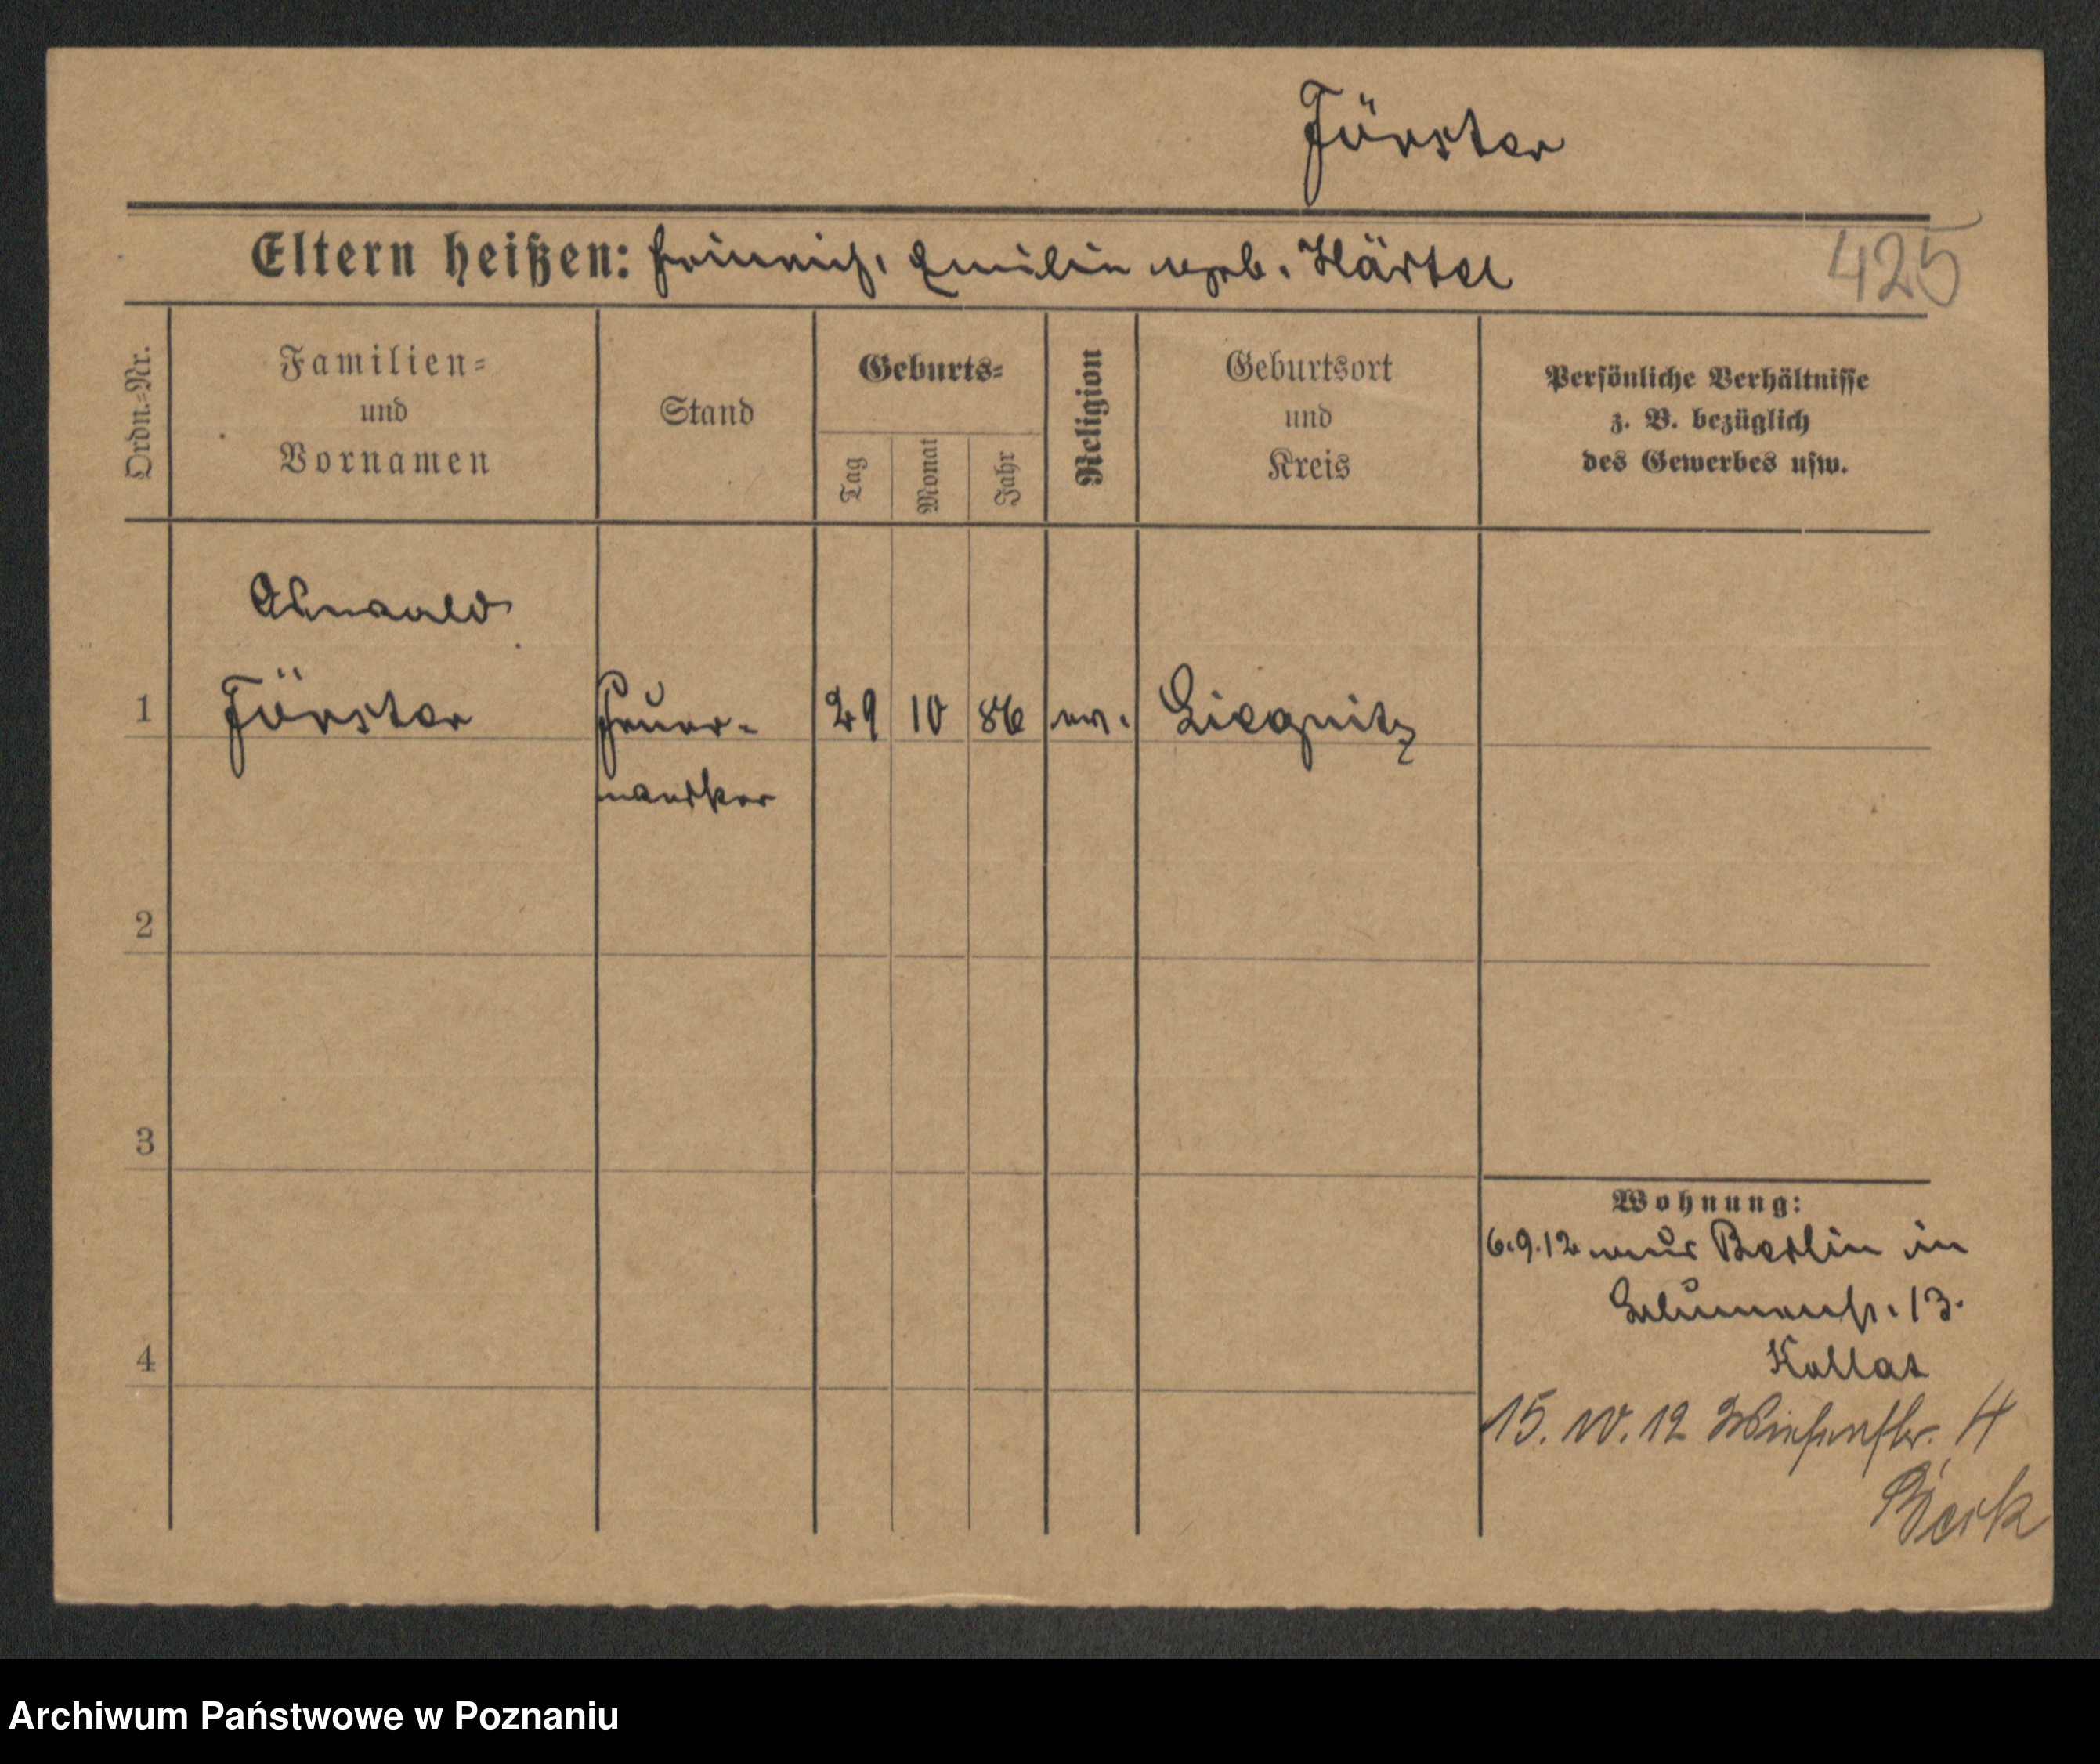 Förster
Eltern heißen: Heinrich, Emilie geb. Härtel
425
Ordn.-Nr.
Familien-
und
Vornamen
Stand
Geburts-
Tag
Monat
Jahr
Religion
Geburtsort
und
Kreis
Persönliche Verhältnisse
z. B. bezüglich
des Gewerbes usw.
1
Förster
Feuer-
29 10 86 ev. Liegnitz
2
3
4
Wohnung:
6.9.12 aus Berlin in
Blumenstr. 13.
Kollat
15. 10. 12 Wiesenstr. 4
Archiwum Państwowe w Poznaniu